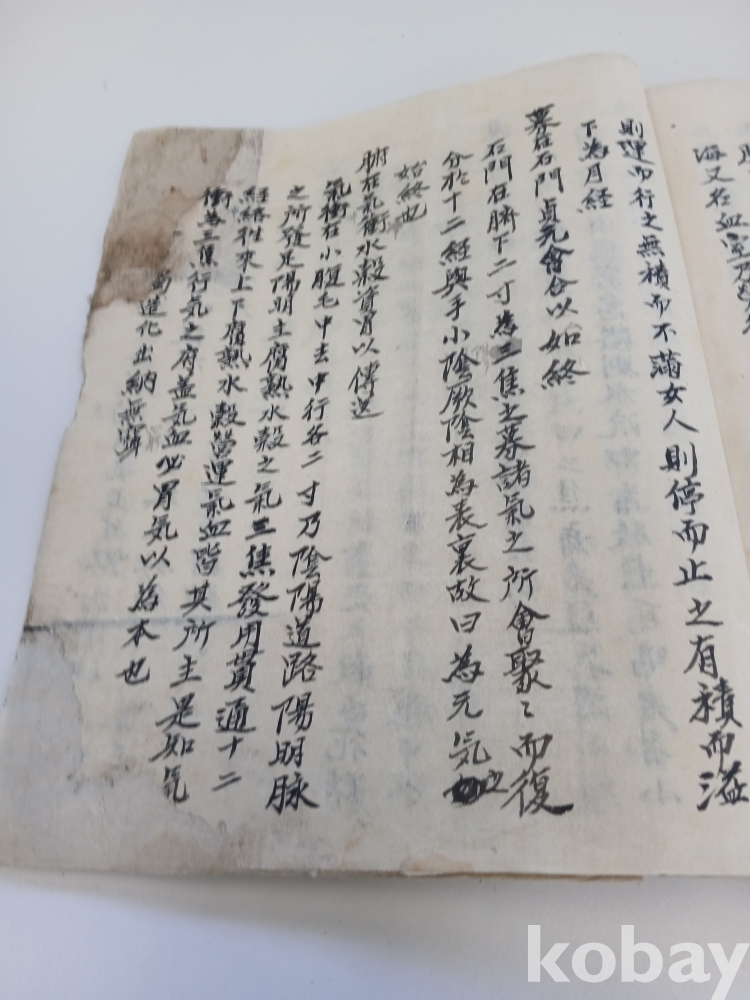 海又名血室乃
則運而行之無積而不滿女人則停而止之有積而溢
下為月経
募在石門貞元會合以如終
石門在臍下二寸為三焦之募諸氣之所會聚〻而復
分於十二経與手小陰厥陰相為表裏故曰為元気之
始終也
腑在气衝水穀資胃以傳送
氣衝在小腹毛中去中行各二寸乃陰陽道路陽明脉
之所發足陽明主腐熟水穀之氣三焦發用貫通十二
経絡徃來上下腐熟水穀營運氣血皆其所主是知気
衝為三焦行気之府盖気血必胃気以為本也
造化出納無窮
kobay